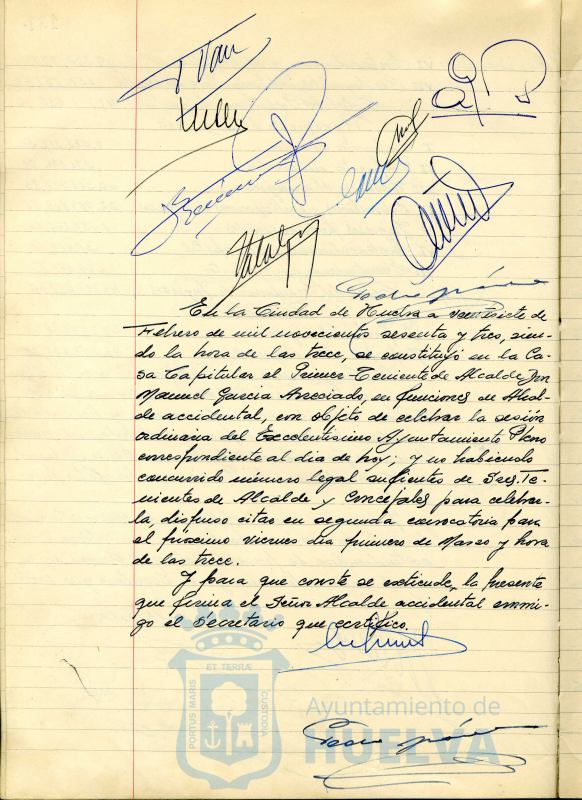 En la Ciudad de Huelva a veintisiete de
Febrero de mil novecientos sesenta y tres, sien-
do la hora de las trece, se constituyó en la Ca-
sa Capitular el Primer Teniente de Alcalde Don
Manuel Garcia Asociado, en funciones de Alcal-
de accidental, con objeto de celebrar la sesión
ordinaria del Excelentisimo Ayuntamiento Pleno
correspondiente al dia de hoy; y no habiendo
concurrido número legal suficientes de Sres. Te-
nientes de Alcalde y Concejales para celebrar-
la, dispuso citar en segunda convocatoria para
el próximo viernes dia primero de Marzo y hora
de las trece.
Y para que conste se extiende, la presente
que firma el Señor Alcalde accidental conmi-
go el Secretario que certifico.
ET TERRÆ
PORTUS MARIS
CUSTODIA
Ayuntamiento de
HUELVA